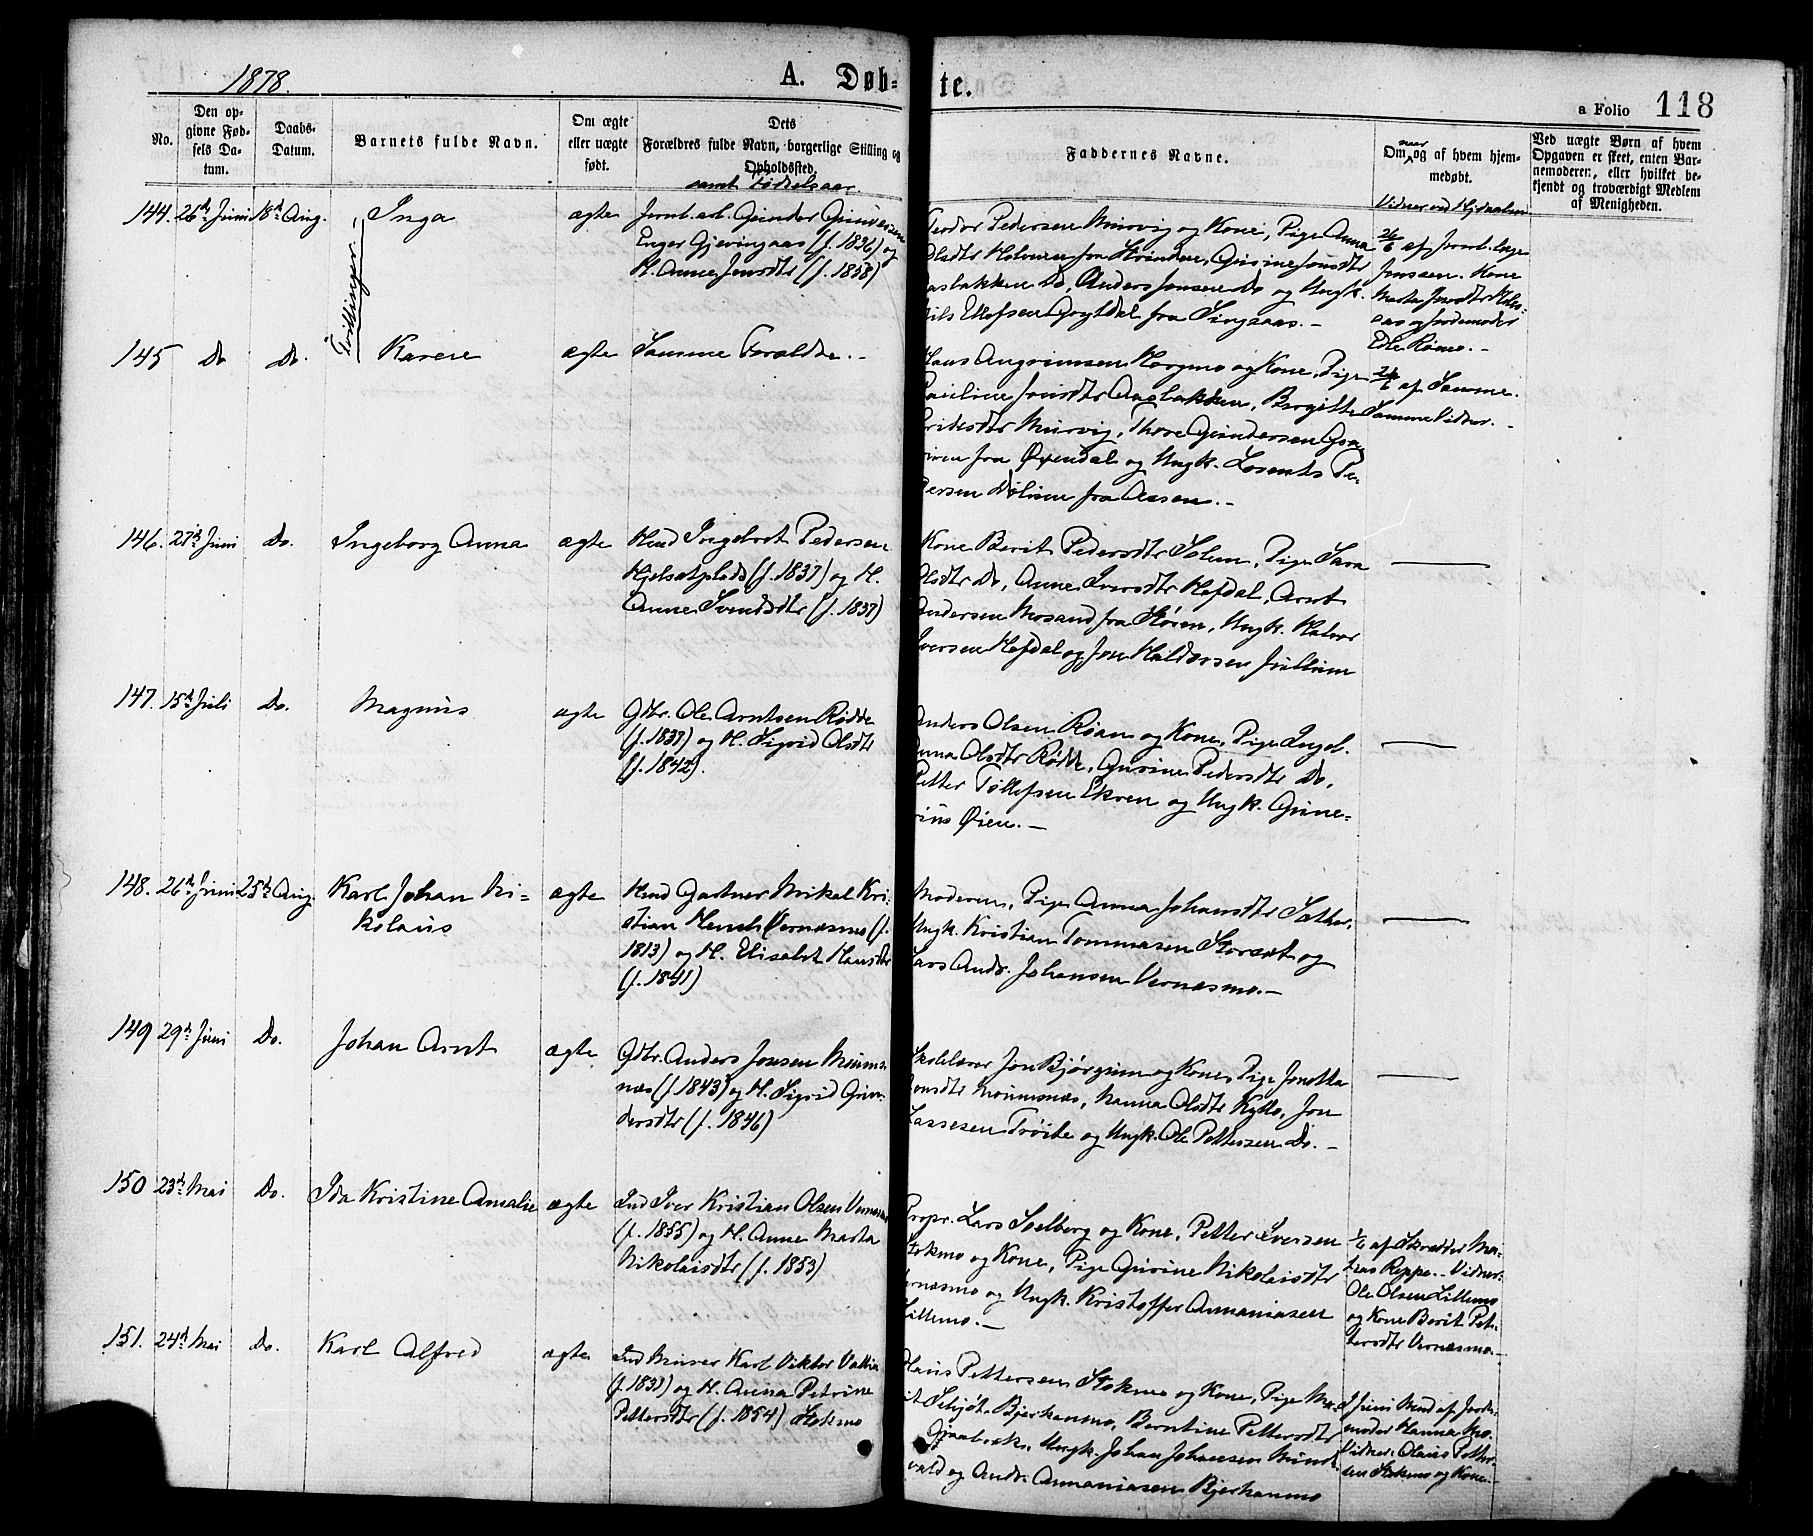 1878.
A. Døb-
te.
a Folio 118
No.
Den op-
givne Fød-
sels Da-
tum.
Daabs-
Datum.
Barnets fulde Navn.
Om ægte
eller uægte
født.
Dets
Forældres fulde Navn, borgerlige Stilling og
Opholdssted,
samt Fødselsaar.
Faddernes Navne.
Om og af hvem hjem-
naar
medøbt.
Vidner ved Hjdaaben
Ved uægte Børn af hvem
Opgaven er skeet, enten Bar-
nemoderen, eller hvilket be-
kjendt og troværdigt Medlem
af Menigheden.
144. 26de Juni 18de Aug.
Tvillinger
Inga
ægte
Jernb.arb. Gunder Gunversen
Enger Gjevingaas (f. 1836) og
H. Anne Jonsdtr (f. 1838)
Pedersen Murvig og Kone, Pige Anna
Olsdtr fra Strinden, Gurine Jonsdtr
Aasbakken Do, Anders Jonsen Do og Ungk.
Nils Ellefsen Grytdal fra Singsaas. -
26/6 af Jernb.
Jonssen. Kone
Marta Jonsdtr
og Jordemoder
145 Do Do.
Karen
ægte
Samme Foreldre. -
Hans Angrimsen Horgmo og Kone, Pige
Pauline Jonsdtr Aasbakken, Birgitte
Murvig, Thore Gundersen
fra Øxendal og Ungk. Lorents Pe-
dersen fra Aasen. -
26/6 af Samme.
Samme Vidner. -
146. 27de Juni Do.
Ingeborg Anna
ægte
Hmd Ingebret Pedersen
Hjelsetplads (f. 1837) og H.
Anne Svendsdtr (f. 1837)
Kone Berit Pedersdtr Solem, Pige Sara
Olsdtr Do, Anne Iversdtr Hofdal, Arnt
Andersen Mosand fra Støren, Ungk. Halvor
Iversen Hofdal og Jon Haldorsen
147. 15de Juli Do.
Magnus
ægte
Gdbr. Ole Arntsen Rødde
(f. 1837) og H. Sigrid Olsdtr
(f. 1842).
Anders Olsen Røan og Kone, Pige Ingeb.
Anna Olsdtr Rødde, Gurine Pedersdtr Do,
Petter Tøllefsen Ekren og Ungk. Gune-
rius Øien. -
148. 26de Juni 25de Aug.
Karl Johan Ni-
kolaus
ægte
Hmd Gartner Mikal Kri-
stian Vernæsmo (f.
1813) og H. Elisabet Hansdtr
(f. 1841)
Moderen, Pige Anna Johansdtr Sather,
Ungk. Kristian Tommasen Storset og
Lars Andr. Johansen Vernæsmo. -
149 29de Juni Do.
Johan Arnt
ægte
Gdbr. Anders Jonsen Muums-
næs (f. 1843) og H. Sigrid Gun-
dersdtr (f. 1846)
Skolelærer Jon Bjørgum og Kone, Pige Jonetta
Jonsdtr Muumsnæs, Hanna Olsdtr Kytlo, Jon
Lassesen Trøite og Ungk. Ole Pettersen Do. -
150 23de Mai Do.
Ida Kristine Amalie
ægte
Ind Iver Kristian Olsen Vernæsmo
(f. 1855) og H. Anne Marta
Nikolaisdtr (f. 1853)
Propr. Lars Selberg og Kone, Petter Iversen
Stokmo og Kone, Pige Gurine Nikolaisdtr
Vernæsmo og Ungk. Kristoffer Annaniasen
Lillemo. -
1/6 af Skrædder Ma-
tias Reppe. - Vidner:
Ole Olsen Lillemo
og Kone Berit Pet-
tersdtr Vernæsmo. -
151. 24de Mai Do.
Karl Alfred
ægte
Ind Murer Karl Viktor Vallin
(f. 1837) og H. Anna Petrine
Pettersdtr (f. 1854) Stokmo
Hans Pettersen Stokmo og Kone, Pige Ma-
rit Bjerkanmo, Berntine Pettersdtr
Graabrek, Ungk. Johan Johansen
og Andr. Annaniasen Bjerkanmo
Juni af Jorde-
moder Hanna Mo.
Vidner: Olaus Petter-
sen Stokmo og Kone. -